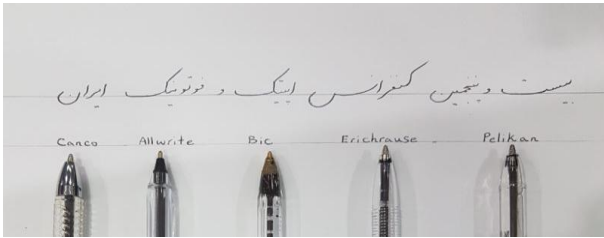 بیست و پنجمین کنفرانس اپتیک و فوتونیک ایران
Canco Allwrite Bic Erichrause Pelikan